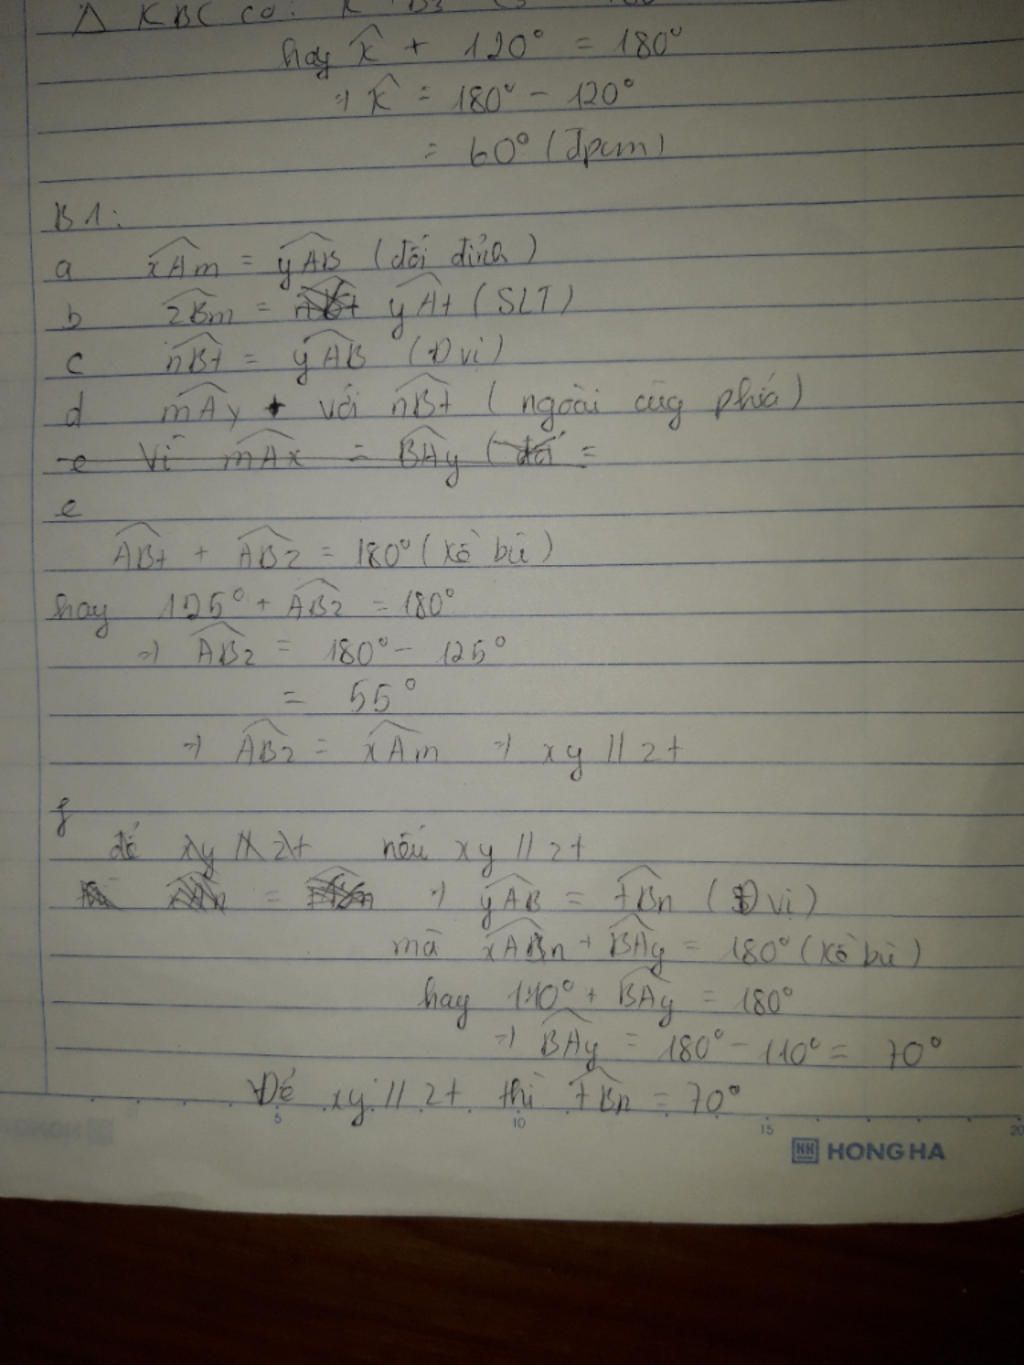 Δ KBC có:
hay K̂ + 120° = 180°
⇒ K̂ = 180° - 120°
= 60° (đpcm)
B1:
a xAm = yAB (đối đỉnh)
b zBm = yAt (SLT)
c nBt = yAB (Đvị)
d mAy với nBt (ngoài cùg phía)
e Vì mAx = BAy (đối =
e
ABt + ABz = 180° (kề bù)
hay 125° + ABz = 180°
⇒ ABz = 180° - 125°
= 55°
⇒ ABz = xAm ⇒ xy // zt
f
để xy // zt nếu xy // zt
= ⇒ yAB = tBn (Đvị)
mà xABn + BAy = 180° (kề bù)
hay 110° + BAy = 180°
⇒ BAy = 180° - 110° = 70°
Để xy // zt thì tBn = 70°
5 10 15 20
HONG HA